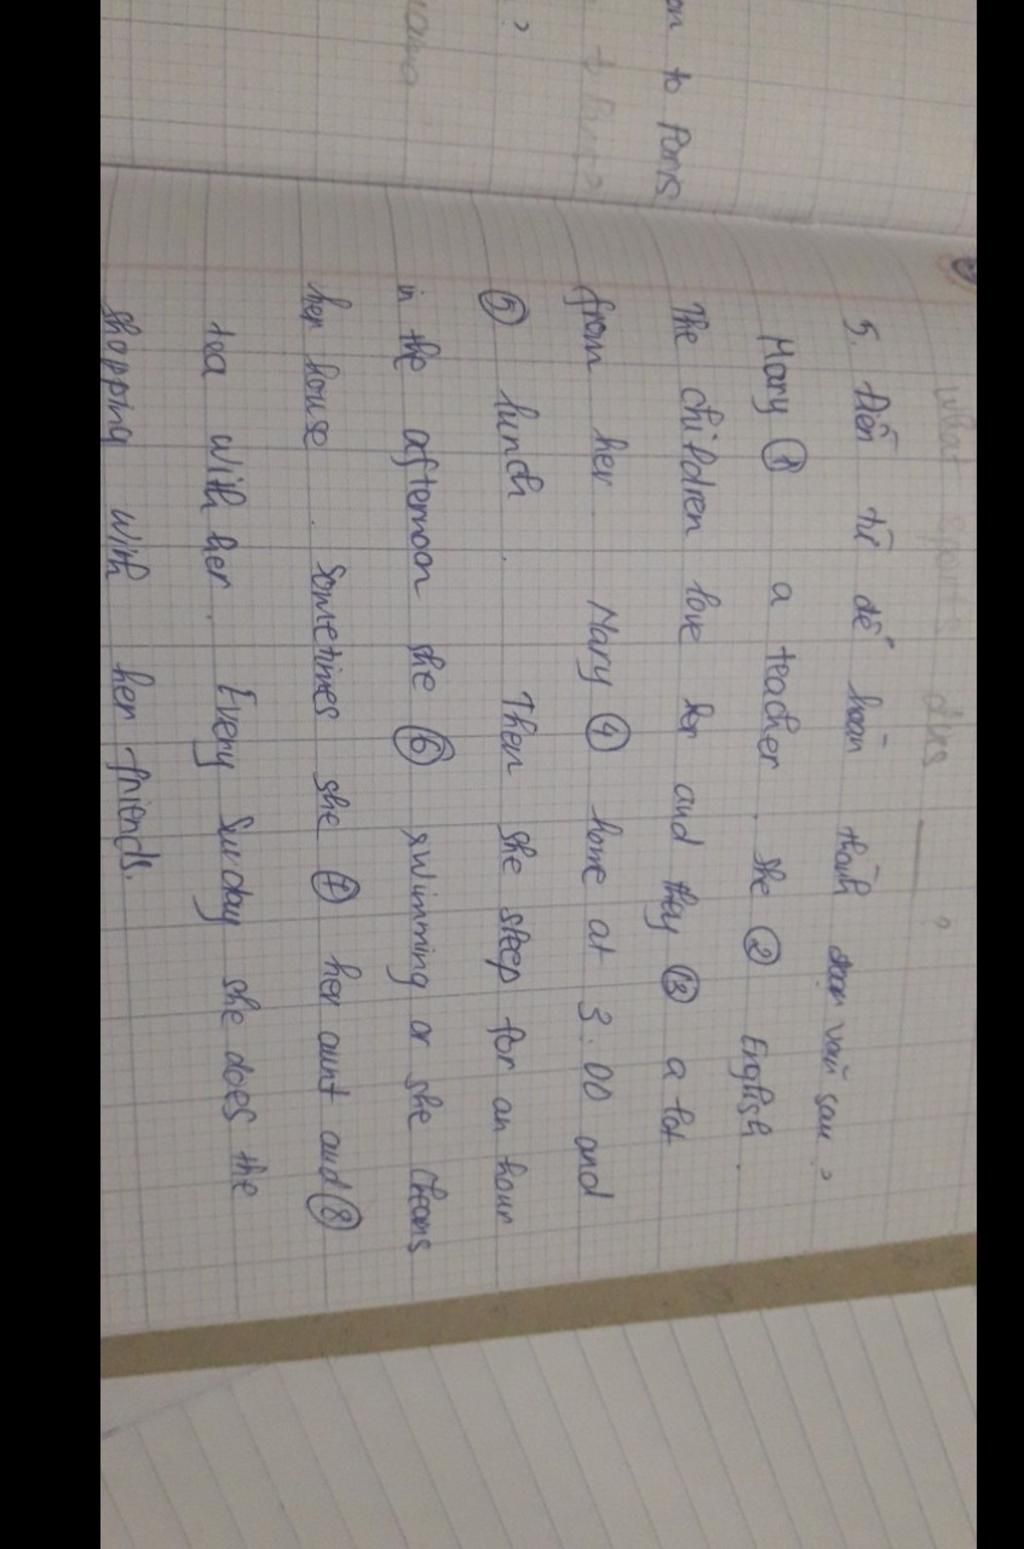 on to Paris
?
What sports does ______ ?
5. Điền từ để hoàn thành đoạn văn sau ?
Mary ① a teacher . She ② English .
The children love her and they ③ a lot
from her Mary ④ home at 3.00 and
⑤ lunch . Then she sleep for an hour
in the afternoon she ⑥ swimming or she cleans
her house . Sometimes she ⑦ her aunt and ⑧
tea with her . Every Sunday she does the
shopping with her friends.